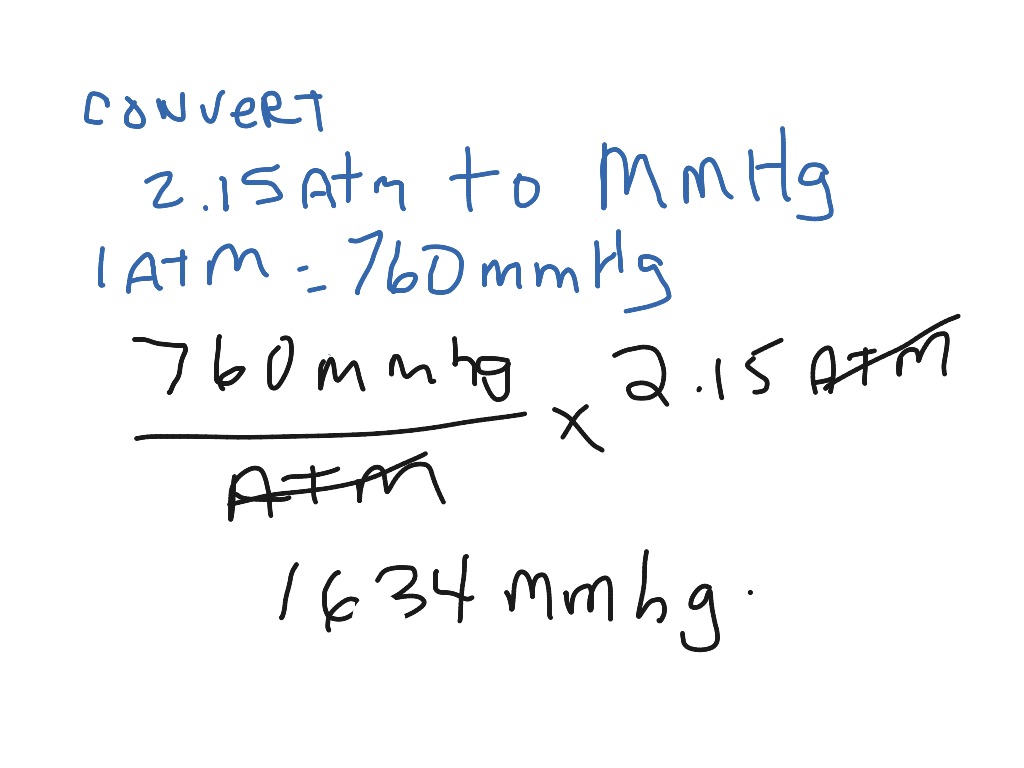 CONVERT
2.15 Atm to MmHg
1 ATM = 760 mmHg
760 mmhg × 2.15 ATM
ATM
1634 mmhg.